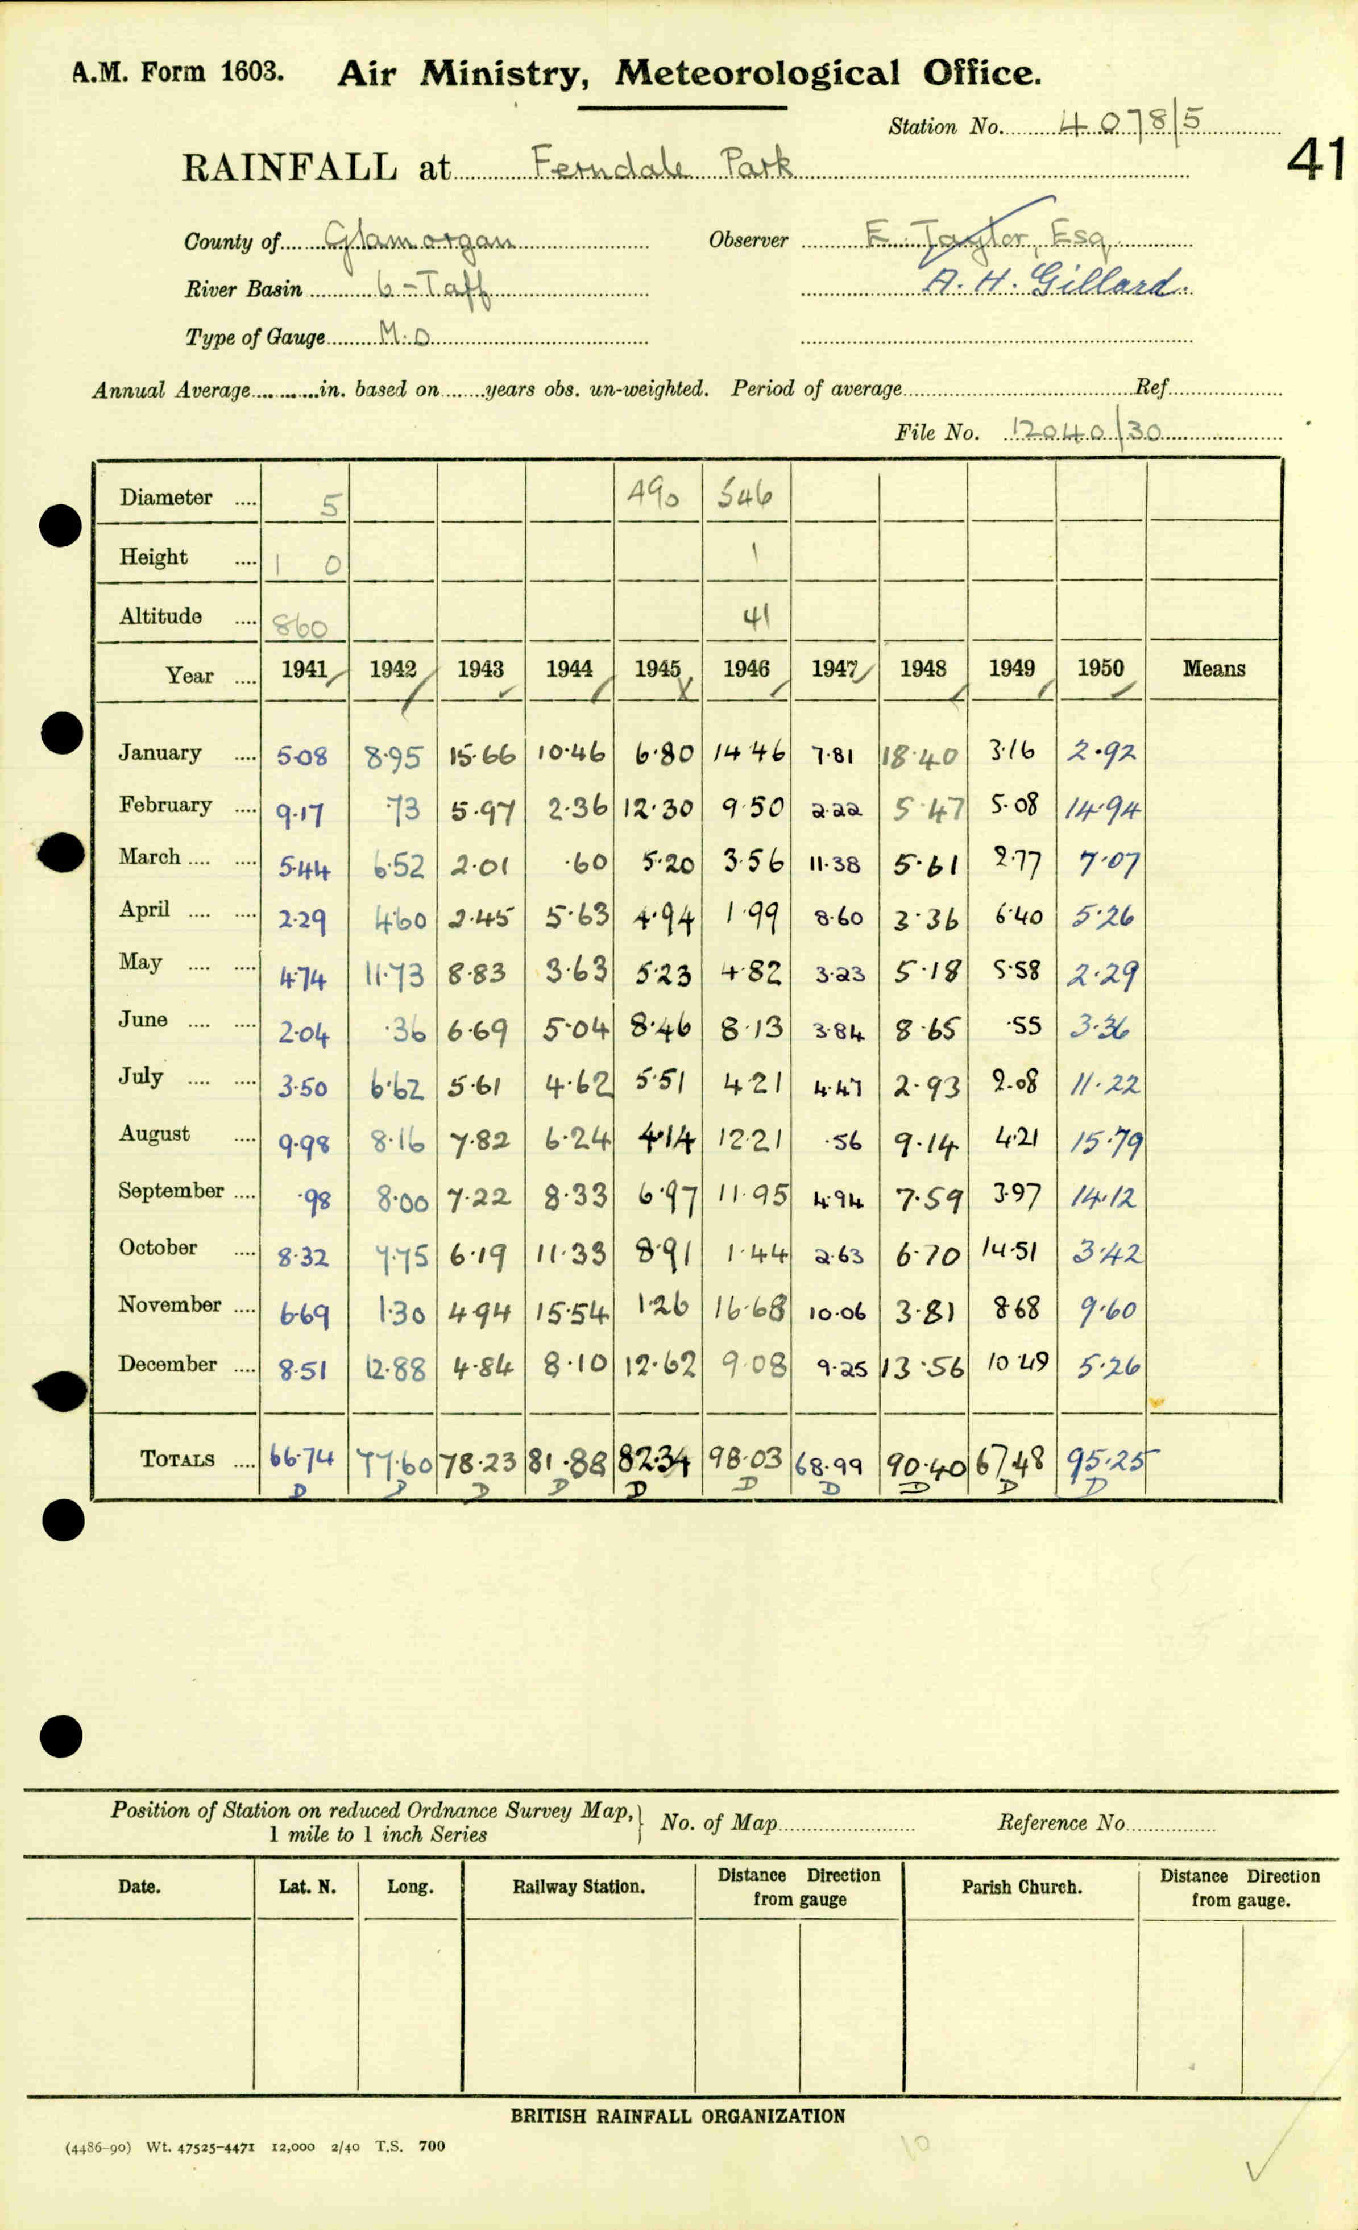 A.M. Form 1603. Air Ministry, Meteorological Office.
Station No. 4078/5
41
RAINFALL at Ferndale Park
County of Glamorgan Observer E. Taylor, Esq
River Basin 6-Taff A. H. Gillard.
Type of Gauge M.O
Annual Average in. based on years obs. un-weighted. Period of average Ref
File No. 12040/30
Diameter .... 5 A90 546
Height .... 1 0 1
Altitude .... 860 41
Year .... 1941 1942 1943 1944 1945 1946 1947 1948 1949 1950 Means
January .... 5.08 8.95 15.66 10.46 6.80 14.46 7.81 18.40 3.16 2.92
February .... 9.17 .73 5.97 2.36 12.30 9.50 2.22 5.47 5.08 14.94
March .... .... 5.44 6.52 2.01 .60 5.20 3.56 11.38 5.61 2.77 7.07
April .... .... 2.29 4.60 2.45 5.63 4.94 1.99 8.60 3.36 6.40 5.26
May .... .... 4.74 11.73 8.83 3.63 5.23 4.82 3.23 5.18 5.58 2.29
June .... .... 2.04 .36 6.69 5.04 8.46 8.13 3.84 8.65 .55 3.36
July .... .... 3.50 6.62 5.61 4.62 5.51 4.21 4.47 2.93 2.08 11.22
August .... 9.98 8.16 7.82 6.24 4.14 12.21 .56 9.14 4.21 15.79
September .... .98 8.00 7.22 8.33 6.97 11.95 4.94 7.59 3.97 14.12
October .... 8.32 7.75 6.19 11.33 8.91 1.44 2.63 6.70 14.51 3.42
November .... 6.69 1.30 4.94 15.54 1.26 16.68 10.06 3.81 8.68 9.60
December .... 8.51 12.88 4.84 8.10 12.62 9.08 9.25 13.56 10.49 5.26
TOTALS .... 66.74 77.60 78.23 81.88 82.34 98.03 68.99 90.40 67.48 95.25
D D D D D D D D D D
Position of Station on reduced Ordnance Survey Map, } No. of Map Reference No
1 mile to 1 inch Series
Date. Lat. N. Long. Railway Station. Distance Direction from gauge Parish Church. Distance Direction from gauge.
BRITISH RAINFALL ORGANIZATION
(4486-90) Wt. 47525-4471 12,000 2/40 T.S. 700
10